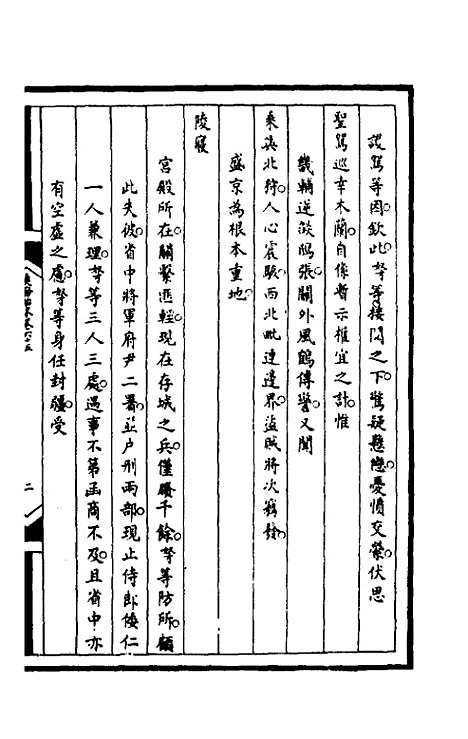 護駕等因欽此。奴等接閱之下。驚疑戀戀。憂憤交縈。伏思
聖駕巡幸木蘭。自係暫示權宜之計。惟
畿輔逆燄鴟張。關外風鶴傳警。又聞
乘輿北狩。人心震駭。而北毗連邊界。盜賊將次竊發。
盛京為根本重地。
陵寢
宮殿所在。關繫匪輕。現在存城之兵。僅賸千餘。奴等防所。顧
此失彼。省中將軍府尹二署。並戶刑兩部。現止侍郎倭仁
一人兼理。奴等三人三處。遇事不第函商不及。且省中亦
有空虛之慮。奴等身任封疆。受
二